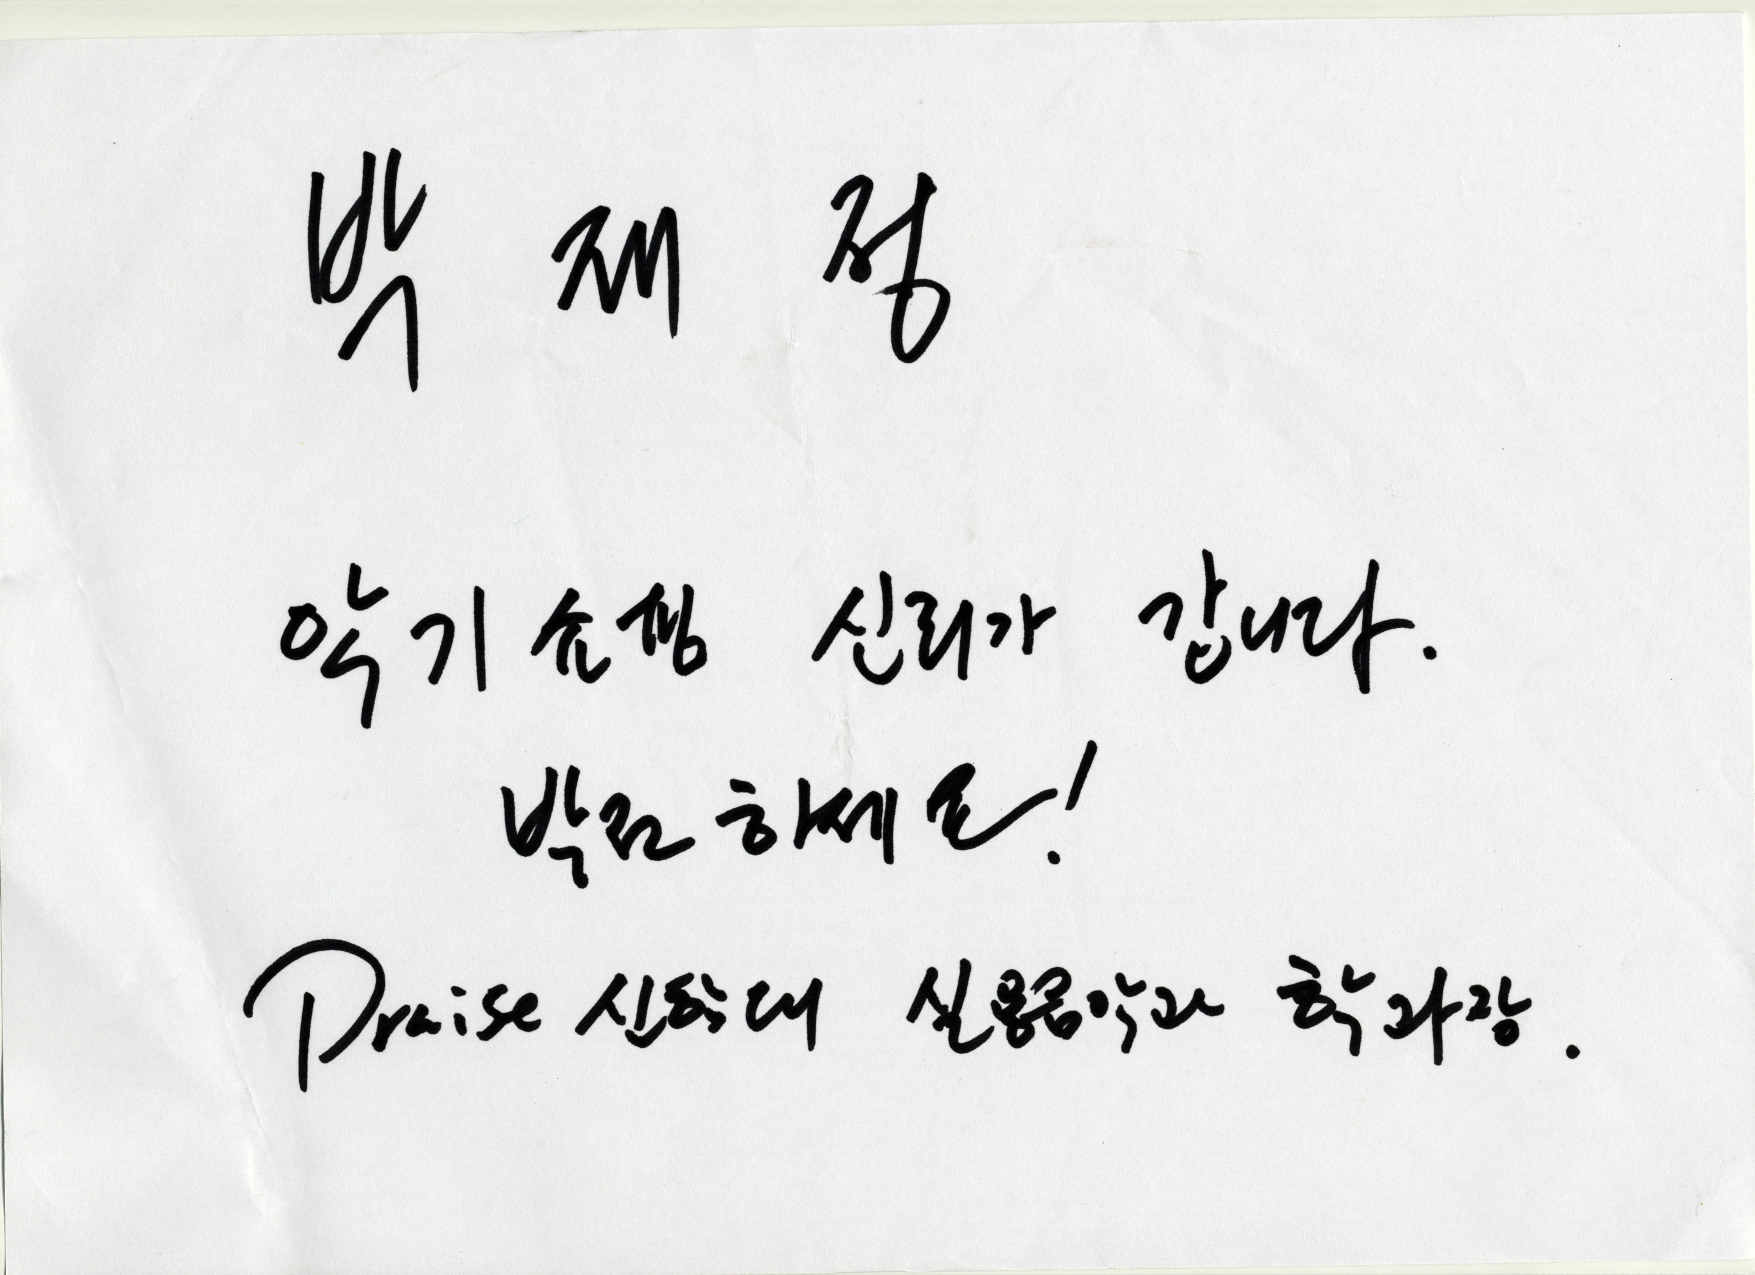 박 재 정
악기쇼핑 신뢰가 갑니다.
번영하세요!
Praise 신학대 실용음악과 학과장.